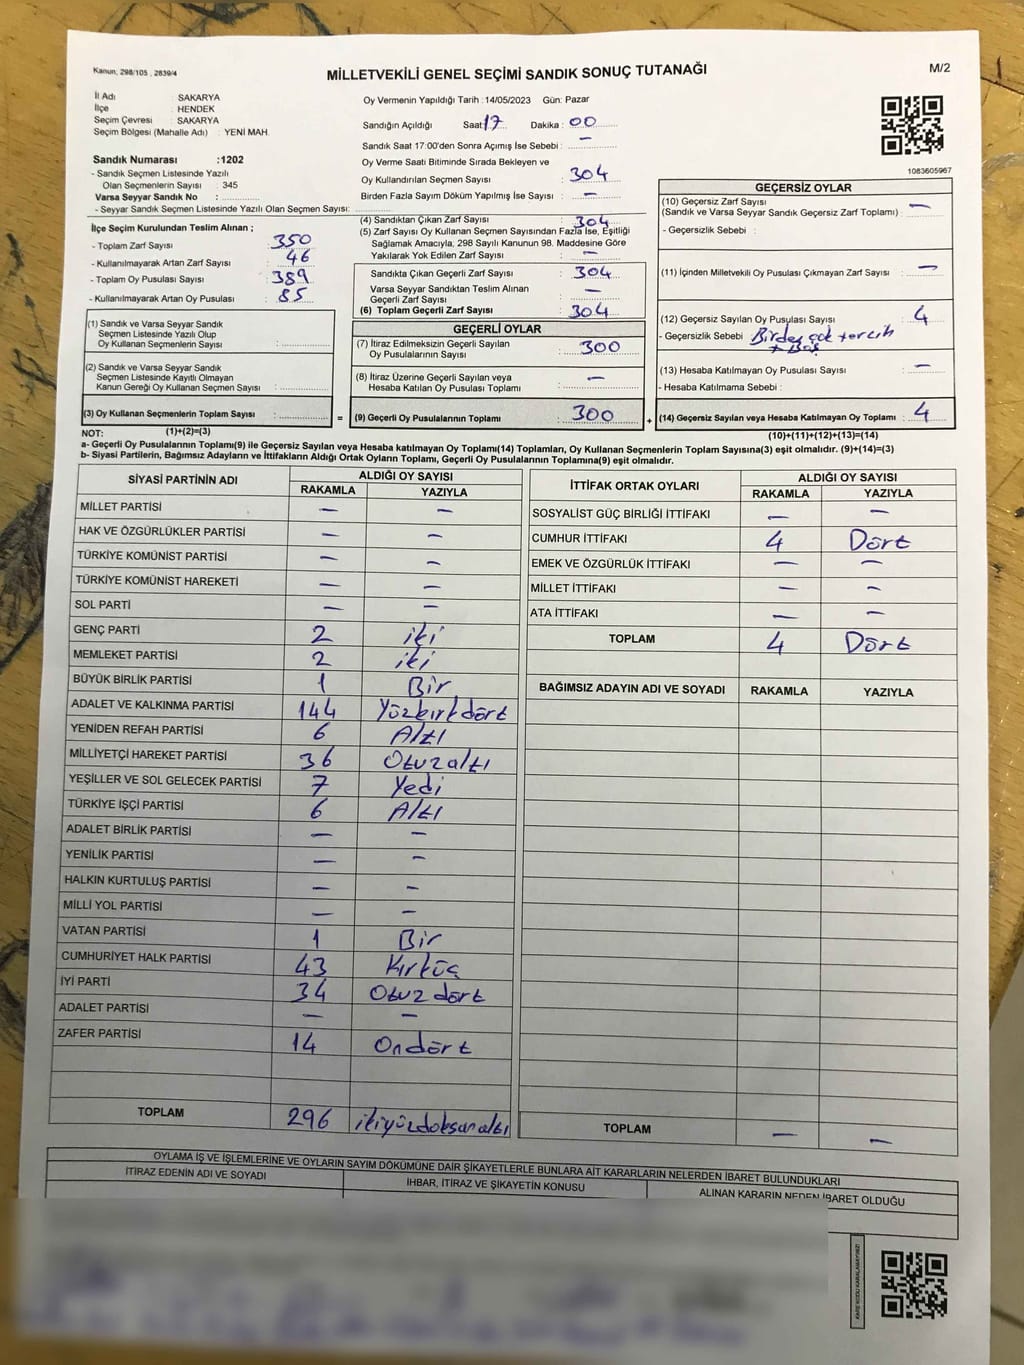 Kanun, 298/105 , 2839/4
MİLLETVEKİLİ GENEL SEÇİMİ SANDIK SONUÇ TUTANAĞI
M/2
İl Adı : SAKARYA
İlçe : HENDEK
Seçim Çevresi : SAKARYA
Seçim Bölgesi (Mahalle Adı) : YENİ MAH.
Oy Vermenin Yapıldığı Tarih :14/05/2023 Gün: Pazar
Sandığın Açıldığı Saat 17 Dakika : 00
Sandık Saat 17:00'den Sonra Açımış İse Sebebi : –
Oy Verme Saati Bitiminde Sırada Bekleyen ve
Oy Kullandırılan Seçmen Sayısı : 304
Birden Fazla Sayım Döküm Yapılmış İse Sayısı : –
Sandık Numarası :1202
- Sandık Seçmen Listesinde Yazılı
Olan Seçmenlerin Sayısı : 345
Varsa Seyyar Sandık No :
- Seyyar Sandık Seçmen Listesinde Yazılı Olan Seçmen Sayısı:
İlçe Seçim Kurulundan Teslim Alınan ;
- Toplam Zarf Sayısı : 350
- Kullanılmayarak Artan Zarf Sayısı : 46
- Toplam Oy Pusulası Sayısı : 389
- Kullanılmayarak Artan Oy Pusulası : 85
(4) Sandıktan Çıkan Zarf Sayısı : 304
(5) Zarf Sayısı Oy Kullanan Seçmen Sayısından Fazla İse, Eşitliği
Sağlamak Amacıyla, 298 Sayılı Kanunun 98. Maddesine Göre
Yakılarak Yok Edilen Zarf Sayısı : –
Sandıkta Çıkan Geçerli Zarf Sayısı : 304
Varsa Seyyar Sandıktan Teslim Alınan
Geçerli Zarf Sayısı : –
(6) Toplam Geçerli Zarf Sayısı : 304
(1) Sandık ve Varsa Seyyar Sandık
Seçmen Listesinde Yazılı Olup
Oy Kullanan Seçmenlerin Sayısı :
(2) Sandık ve Varsa Seyyar Sandık
Seçmen Listesinde Kayıtlı Olmayan
Kanun Gereği Oy Kullanan Seçmen Sayısı :
(3) Oy Kullanan Seçmenlerin Toplam Sayısı : =
GEÇERLİ OYLAR
(7) İtiraz Edilmeksizin Geçerli Sayılan
Oy Pusulalarının Sayısı : 300
(8) İtiraz Üzerine Geçerli Sayılan veya
Hesaba Katılan Oy Pusulası Toplamı : –
(9) Geçerli Oy Pusulalarının Toplamı : 300 +
1083605967
GEÇERSİZ OYLAR
(10) Geçersiz Zarf Sayısı
(Sandık ve Varsa Seyyar Sandık Geçersiz Zarf Toplamı) : –
- Geçersizlik Sebebi :
(11) İçinden Milletvekili Oy Pusulası Çıkmayan Zarf Sayısı : –
(12) Geçersiz Sayılan Oy Pusulası Sayısı : 4
- Geçersizlik Sebebi : Birden çok tercih
+ Boş
(13) Hesaba Katılmayan Oy Pusulası Sayısı : –
- Hesaba Katılmama Sebebi :
(14) Geçersiz Sayılan veya Hesaba Katılmayan Oy Toplamı : 4
NOT: (1)+(2)=(3) (10)+(11)+(12)+(13)=(14)
a- Geçerli Oy Pusulalarının Toplamı(9) ile Geçersiz Sayılan veya Hesaba katılmayan Oy Toplamı(14) Toplamları, Oy Kullanan Seçmenlerin Toplam Sayısına(3) eşit olmalıdır. (9)+(14)=(3)
b- Siyasi Partilerin, Bağımsız Adayların ve İttifakların Aldığı Ortak Oyların Toplamı, Geçerli Oy Pusulalarının Toplamına(9) eşit olmalıdır.
SİYASİ PARTİNİN ADI ALDIĞI OY SAYISI
RAKAMLA YAZIYLA
MİLLET PARTİSİ – –
HAK VE ÖZGÜRLÜKLER PARTİSİ – –
TÜRKİYE KOMÜNİST PARTİSİ – –
TÜRKİYE KOMÜNİST HAREKETİ – –
SOL PARTİ – –
GENÇ PARTİ 2 iki
MEMLEKET PARTİSİ 2 iki
BÜYÜK BİRLİK PARTİSİ 1 Bir
ADALET VE KALKINMA PARTİSİ 144 Yüzkırkdört
YENİDEN REFAH PARTİSİ 6 Altı
MİLLİYETÇİ HAREKET PARTİSİ 36 Otuzaltı
YEŞİLLER VE SOL GELECEK PARTİSİ 7 Yedi
TÜRKİYE İŞÇİ PARTİSİ 6 Altı
ADALET BİRLİK PARTİSİ – –
YENİLİK PARTİSİ – –
HALKIN KURTULUŞ PARTİSİ – –
MİLLİ YOL PARTİSİ – –
VATAN PARTİSİ 1 Bir
CUMHURİYET HALK PARTİSİ 43 Kırküç
İYİ PARTİ 34 Otuz dört
ADALET PARTİSİ – –
ZAFER PARTİSİ 14 Ondört
TOPLAM 296 ikiyüzdoksanaltı
İTTİFAK ORTAK OYLARI ALDIĞI OY SAYISI
RAKAMLA YAZIYLA
SOSYALİST GÜÇ BİRLİĞİ İTTİFAKI – –
CUMHUR İTTİFAKI 4 Dört
EMEK VE ÖZGÜRLÜK İTTİFAKI – –
MİLLET İTTİFAKI – –
ATA İTTİFAKI – –
TOPLAM 4 Dört
BAĞIMSIZ ADAYIN ADI VE SOYADI RAKAMLA YAZIYLA
TOPLAM – –
OYLAMA İŞ VE İŞLEMLERİNE VE OYLARIN SAYIM DÖKÜMÜNE DAİR ŞİKAYETLERLE BUNLARA AİT KARARLARIN NELERDEN İBARET BULUNDUKLARI
İTİRAZ EDENİN ADI VE SOYADI İHBAR, İTİRAZ VE ŞİKAYETİN KONUSU ALINAN KARARIN NEDEN İBARET OLDUĞU
KARE KODU KARALAMAYINIZ!